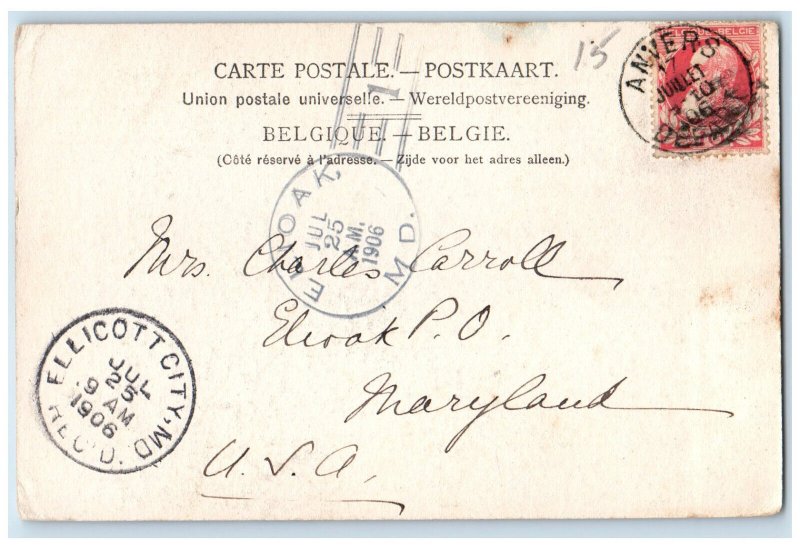 CARTE POSTALE. — POSTKAART.
Union postale universelle. — Wereldpostvereeniging.
BELGIQUE. — BELGIE.
(Côté réservé à l'adresse. — Zijde voor het adres alleen.)
15
BELGIQUE-BELGIE
ANVERS
JUILLET
10
06
1
ELIOAK, MD.
JUL
25
A.M.
1906
Mrs. Charles Carroll
Elioak P.O.
Maryland
U.S.A.
ELLICOTT CITY, MD
JUL
25
9 AM
1906
REC'D.